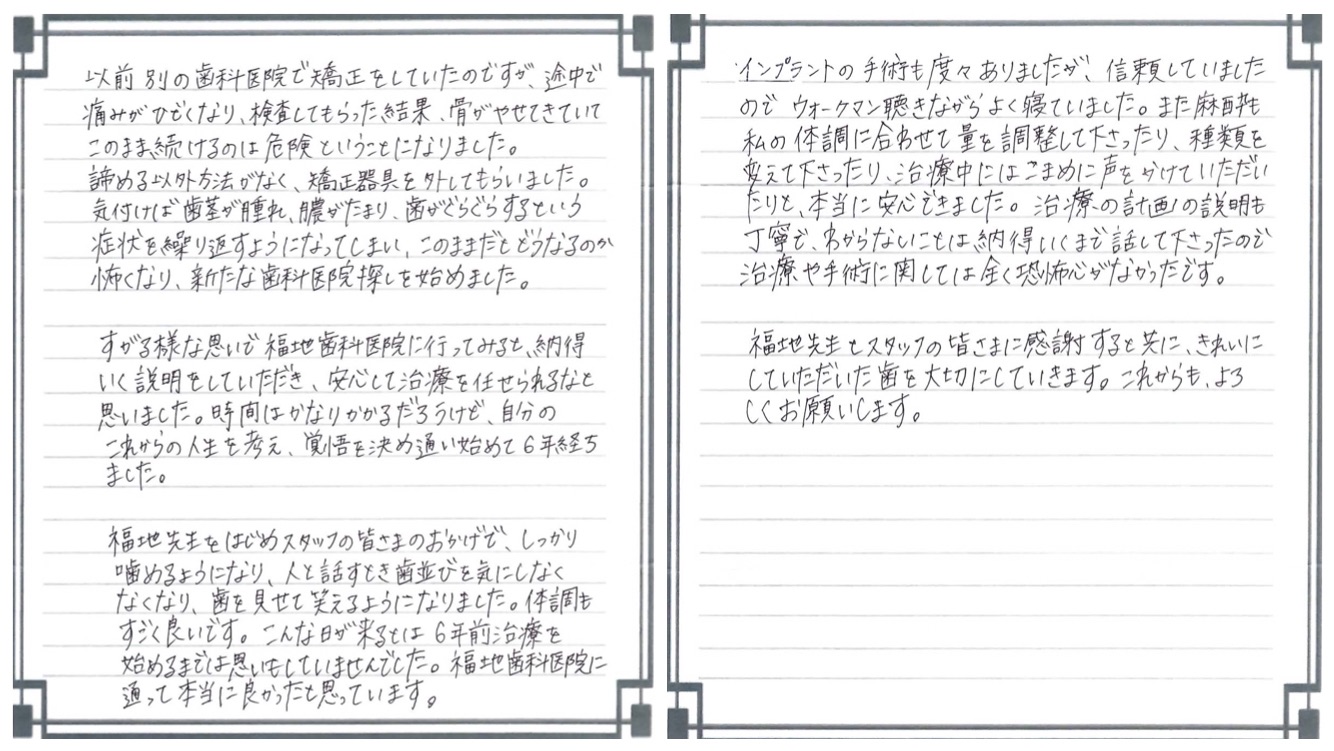 以前別の歯科医院で矯正をしていたのですが、途中で
痛みがひどくなり、検査してもらった結果、骨がやせてきていて
このまま続けるのは危険ということになりました。
諦める以外方法がなく、矯正器具を外してもらいました。
気付けば歯茎が腫れ、膿がたまり、歯がぐらぐらするという
症状を繰り返すようになってしまい、このままだとどうなるのか
怖くなり、新たな歯科医院探しを始めました。
すがる様な思いで福地歯科医院に行ってみると、納得
いく説明をしていただき、安心して治療を任せられるなと
思いました。時間はかなりかかるだろうけど、自分の
これからの人生を考え、覚悟を決め通い始めて6年経ち
ました。
福地先生をはじめスタッフの皆さまのおかげで、しっかり
噛めるようになり、人と話すとき歯並びを気にしなく
なくなり、歯を見せて笑えるようになりました。体調も
すごく良いです。こんな日が来るとは6年前治療を
始めるまでは思いもしていませんでした。福地歯科医院に
通って本当に良かったと思っています。
インプラントの手術も度々ありましたが、信頼していました
のでウォークマン聴きながらよく寝ていました。また麻酔も
私の体調に合わせて量を調整して下さったり、種類を
変えて下さったり、治療中にはこまめに声をかけていただい
たりと、本当に安心できました。治療の計画の説明も
丁寧で、わからないことは納得いくまで話して下さったので
治療や手術に関しては全く恐怖心がなかったです。
福地先生とスタッフの皆さまに感謝すると共に、きれいに
していただいた歯を大切にしていきます。これからも、よろ
しくお願いします。